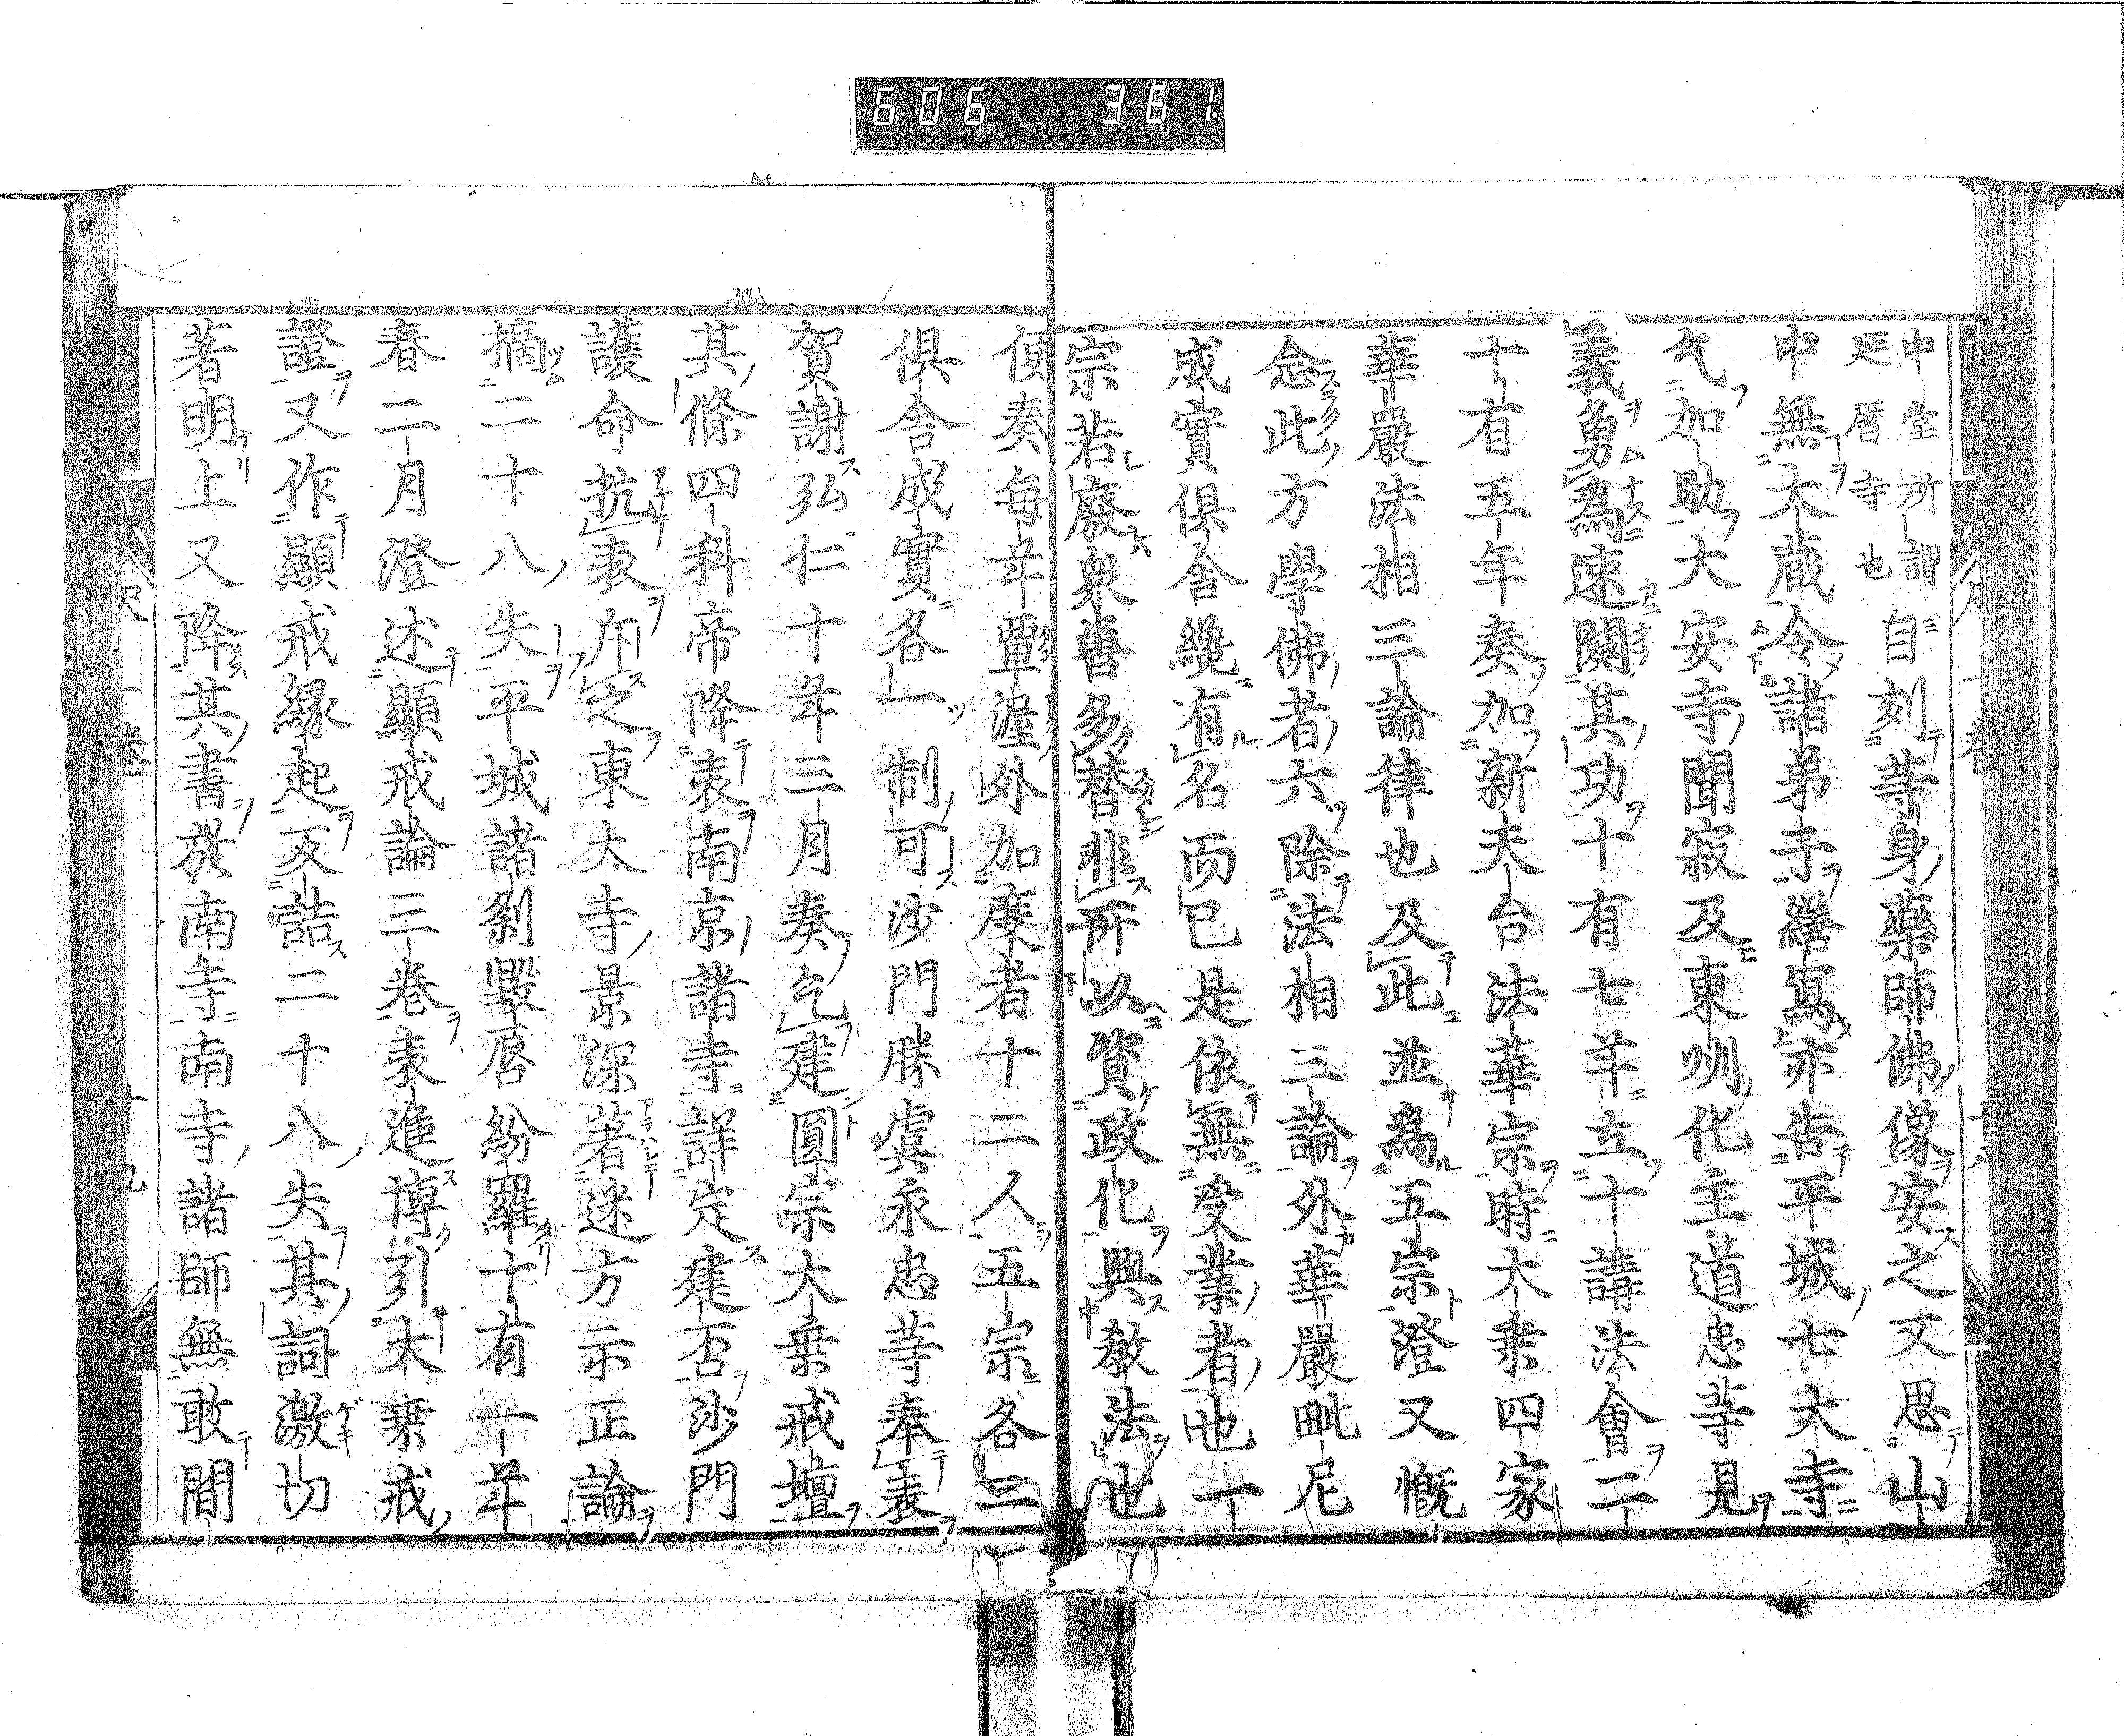 606 361
中堂所謂
延暦寺也
自刻等身藥師佛像安之又思山
中無大藏令諸弟子繕寫亦告平城七大寺
乞加助大安寺聞寂及東州化主道忠等見
義勇爲速関其功十有七年立十講法會二
十有五年奏加新天台法華宗時大乘四家
華嚴法相三論律也及此並爲五宗澄又慨
念此方學佛者六除法相三論外華嚴毗尼
成實俱舍纔有名而已是依無受業者也一
宗若廢衆善多替非所以資政化興教法也
便奏每年覃渥外加度者十二人五宗各二
俱舍成實各一制可沙門勝虞永忠等奉表
賀謝弘仁十年三月奏乞建圓宗大乘戒壇
其條四科帝降表南京諸寺詳定建否沙門
護命抗表斥之東大寺景深著迷方示正論
摘二十八失平城諸剎毀唇紛羅十有一年
春二月澄述顯戒論三卷表進博引大乘戒
證又作顯戒緣起反詰二十八失其詞激切
著明上又降其書於南寺南寺諸師無敢間